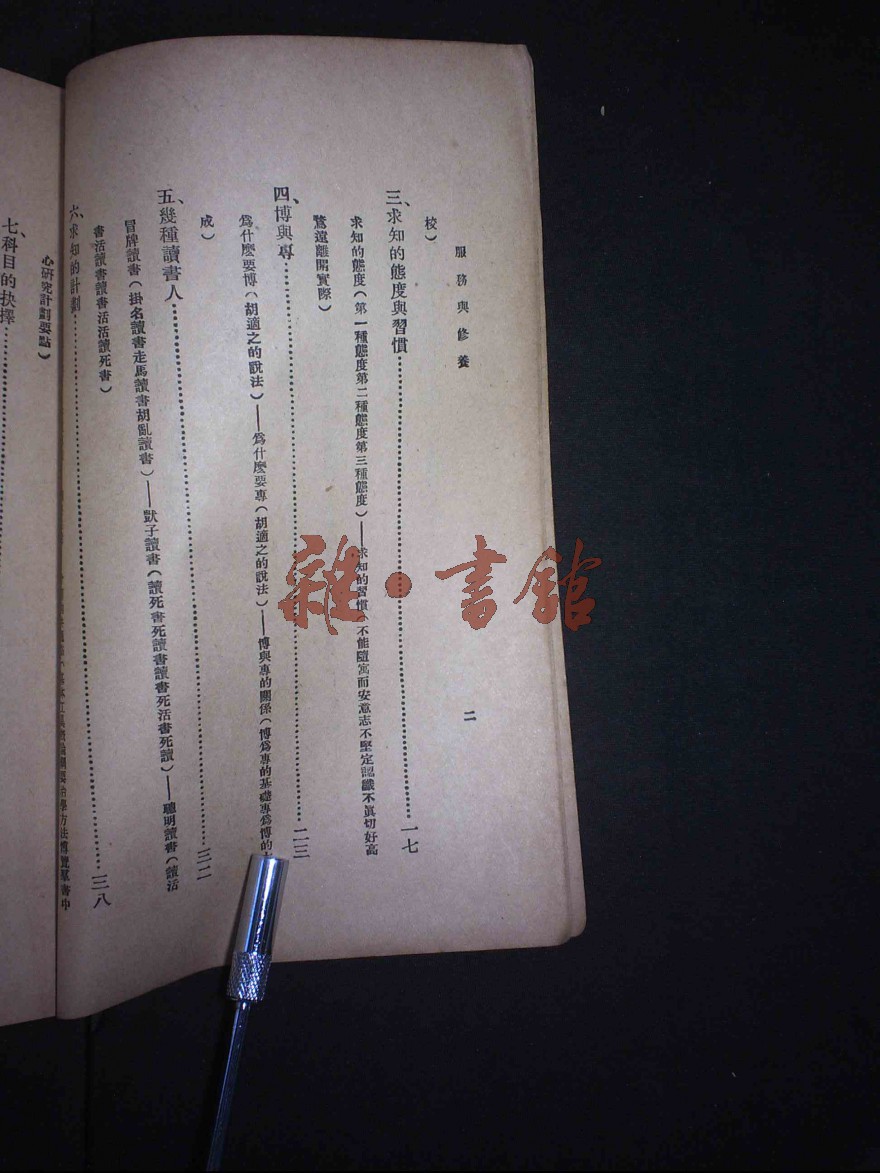 服務與修養
二
校）
三、求知的態度與習慣⋯⋯一七
求知的態度（第一種態度第二種態度第三種態度）——求知的習慣（不能隨寓而安意志不堅定認識不眞切好高
鶩遠離開實際）
四、博與專⋯⋯二三
爲什麼要博（胡適之的說法）——爲什麼要專（胡適之的說法）——博與專的關係（博爲專的基礎專爲博的
成）
五、幾種讀書人⋯⋯三二
冒牌讀書（掛名讀書走馬讀書胡亂讀書）——獃子讀書（讀死書死讀書讀書死活書死讀）——聰明讀書（讀活
書活讀書讀書活活讀死書）
六、求知的計劃⋯⋯三八
治學方法博覽羣書中
心研究計劃要點）
七、科目的抉擇⋯⋯
雜·書館